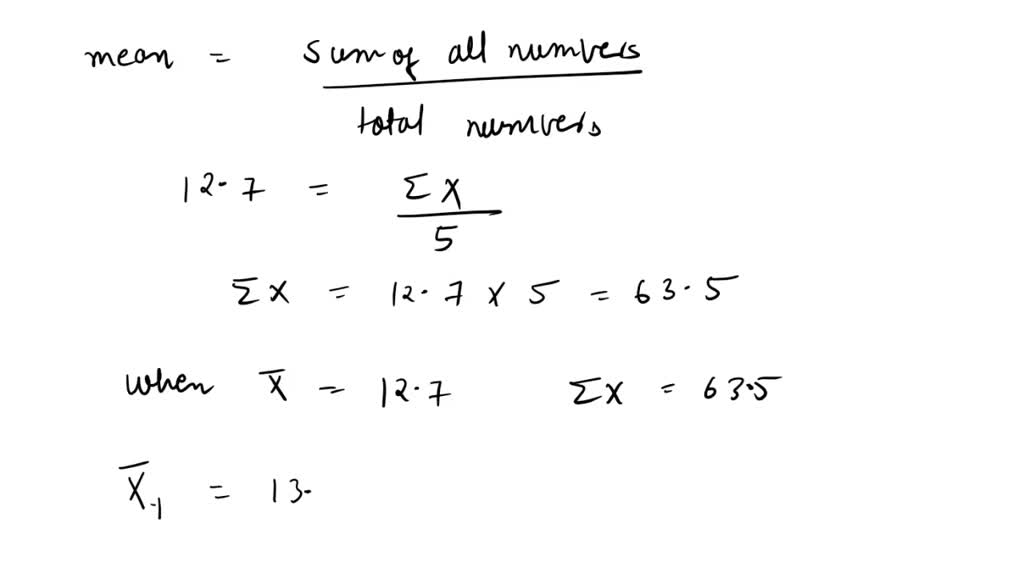 mean = sum of all numbers
total numbers
12.7 = ΣX
5
ΣX = 12.7 x 5 = 63.5
when X̄ = 12.7 ΣX = 63.5
X̄₁ = 13.